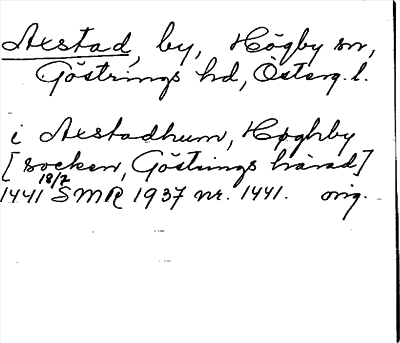 Axstad, by, Högby sn,
Göstrings hd, Österg.l.
i Axstadhum, Høghby
[socken, Göstrings härad]
1441 18/2 SMR 1937 nr. 1441. orig.